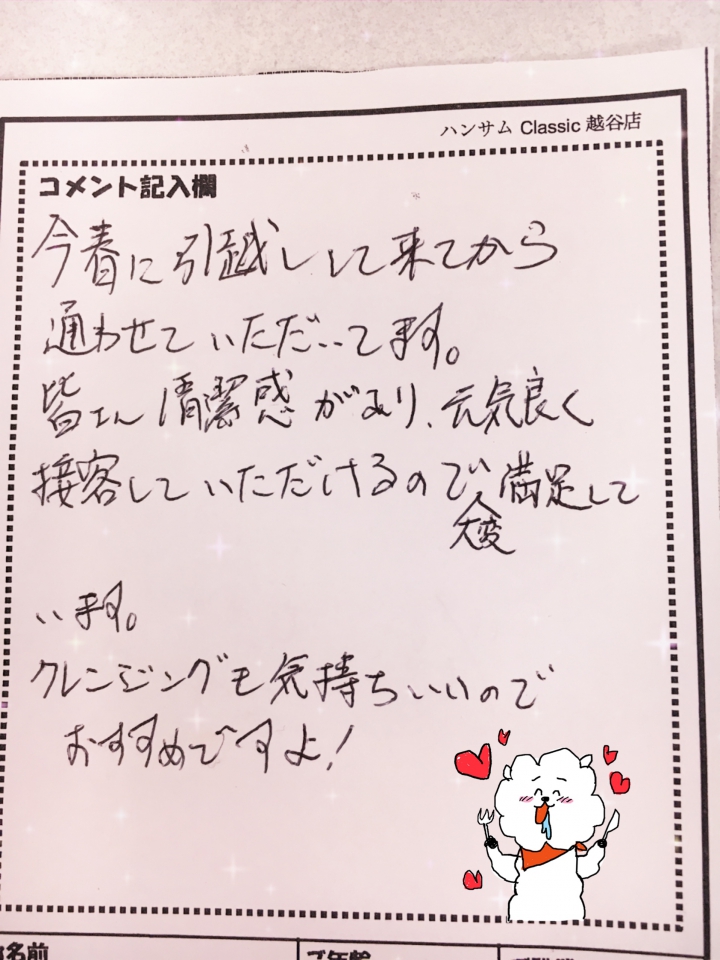 ハンサム Classic 越谷店
コメント記入欄
今春に引越しして来てから
通わせていただいてます。
皆さん清潔感があり、元気良く
接客していただけるので大変満足して
います。
クレンジングも気持ちいいので
おすすめですよ!
名前
ご年齢